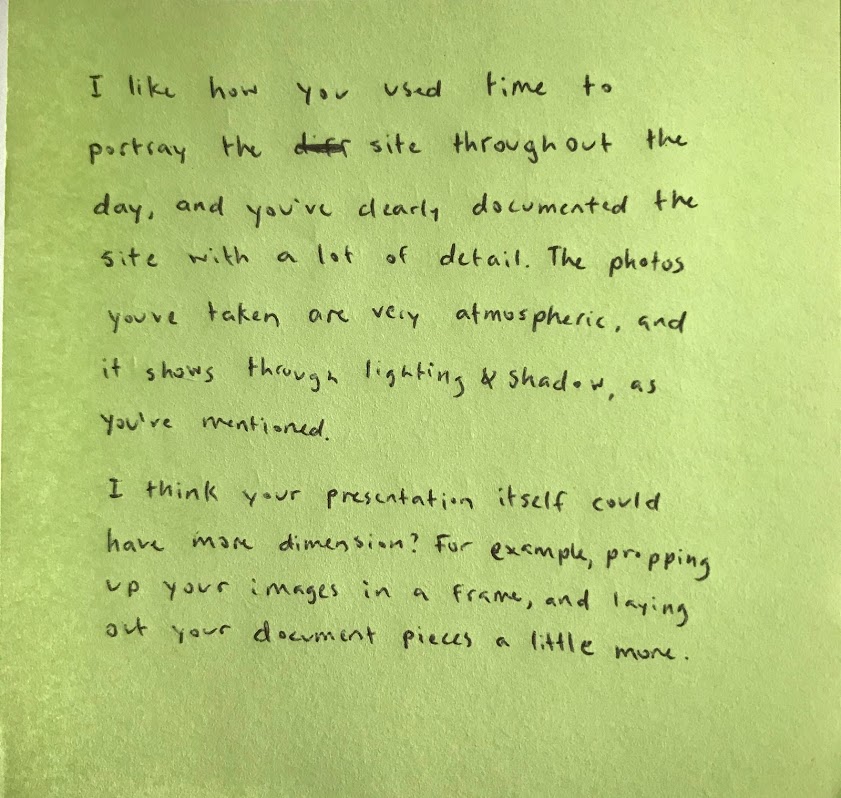 I like how you used time to
portray the site throughout the
day, and you've clearly documented the
site with a lot of detail. The photos
youve taken are very atmospheric, and
it shows through lighting & shadow, as
you've mentioned.
I think your presentation itself could
have more dimension? For example, propping
up your images in a frame, and laying
out your document pieces a little more.